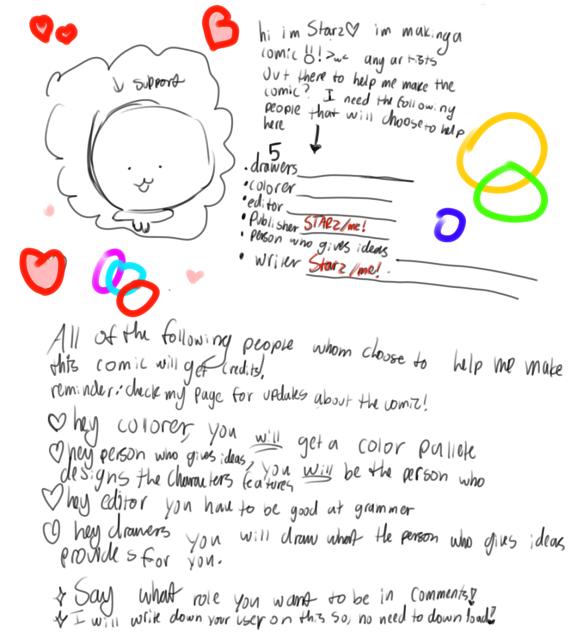 ↓ support
hi im Starz♡ im making a
comic!!! >w< any artists
out there to help me make the
comic? I need the following
people that will choose to help
here ↓
5
• drawers
• colorer
• editor
• Publisher STARZ/me!
• person who gives ideas
• writer Starz/me!
All of the following people whom choose to help me make
this comic will get credits!
reminder: check my page for updates about the comic!
♡ hey colorer, you will get a color pallete
♡ hey person who gives ideas, you will be the person who
designs the characters features
♡ hey editor you have to be good at grammer
♡ hey drawers you will draw what the person who gives ideas
provides for you.
✧ Say what role you want to be in comments!
✧ I will write down your user on this so, no need to download!